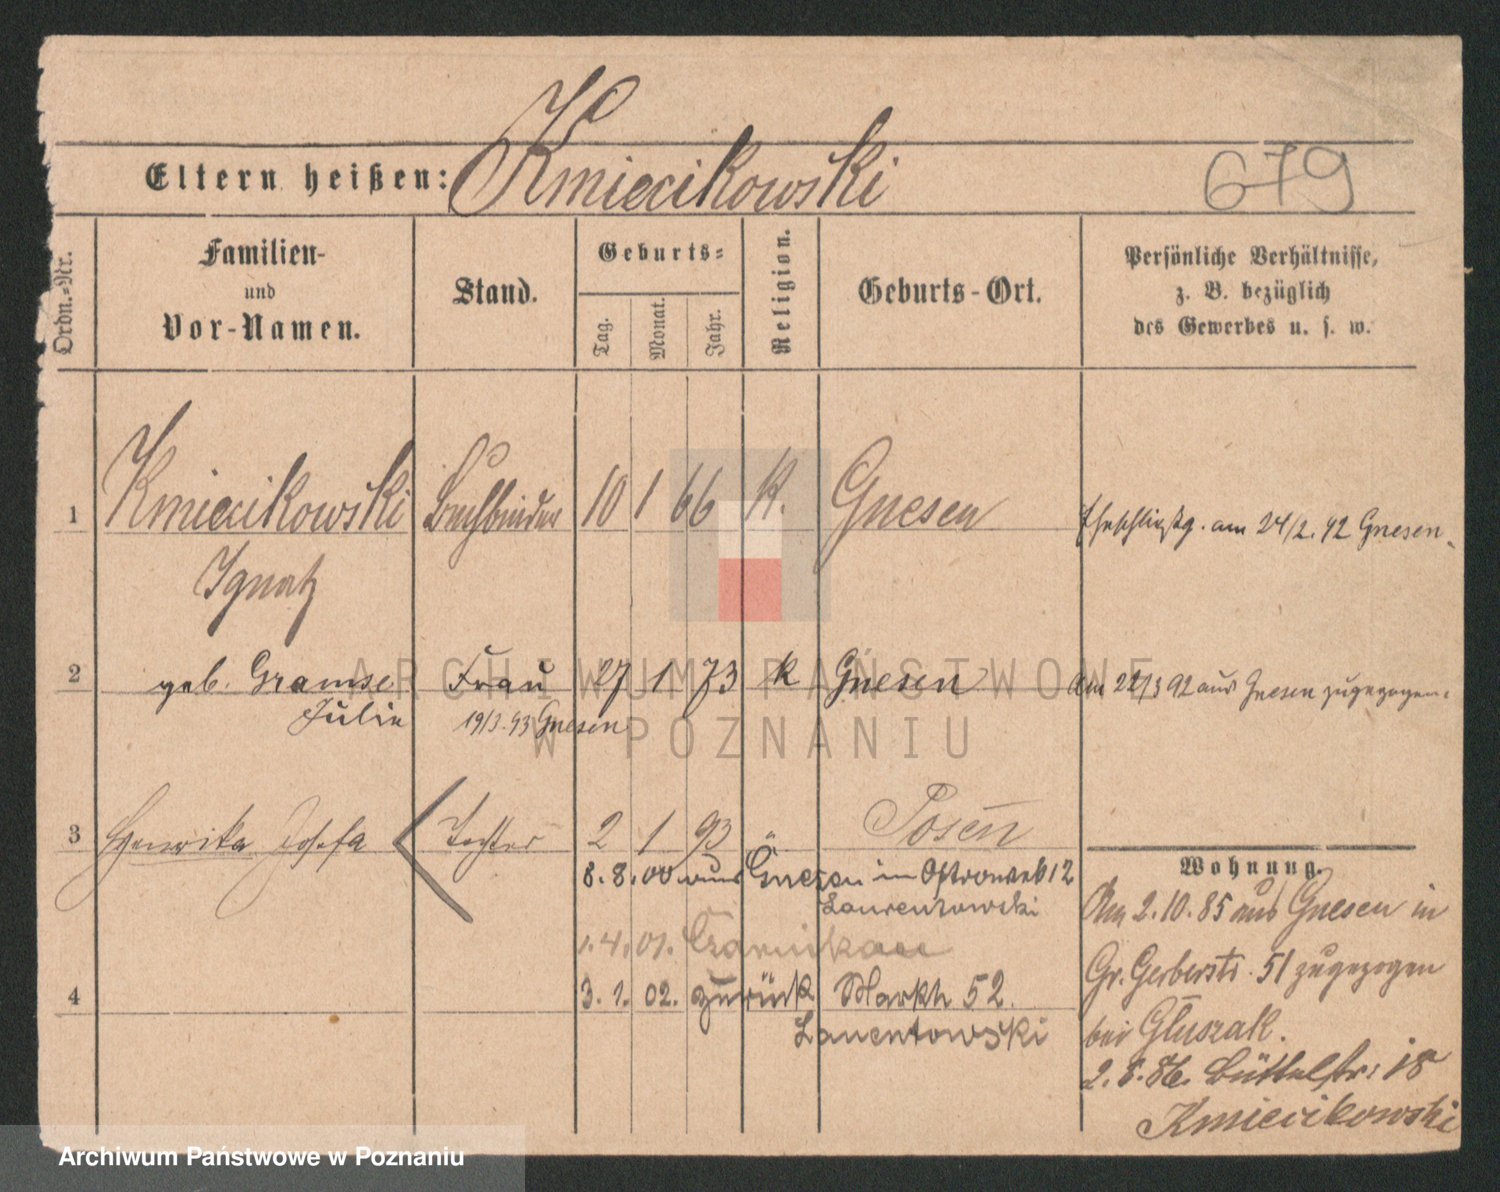 Eltern heißen: Kmiecikowski
679
Ordn.-Nr.
Familien-
und
Vor-Namen.
Stand.
Geburts-
Tag.
Monat.
Jahr.
Religion.
Geburts-Ort.
Persönliche Verhältnisse,
z. B. bezüglich
des Gewerbes u. s. w.
1 Kmiecikowski Buchbinder 10 1 66 k. Gnesen Eheschließg. am 24/2. 92 Gnesen.
Ignatz
2 geb. Gramse Frau 27 1 73 k Gnesen Am 22/3 92 aus Gnesen zugezogen.
Julie 19/3. 93 Gnesen
3 Henrika Josefa Tochter 2 1 93 Posen
8. 8. 00 aus Gnesen in 12
Laurentowski
1. 4. 01. Czarnikau
4 3. 1. 02. zurück Markt 52.
Lauentowski
Wohnung.
Am 2. 10. 85 aus Gnesen in
Gr. Gerberstr. 51 zugezogen
bei Gluszak.
2. 5. 86. Büttelstr: 18
Kmiecikowski
ARCHIWUM PAŃSTWOWE
W POZNANIU
Archiwum Państwowe w Poznaniu